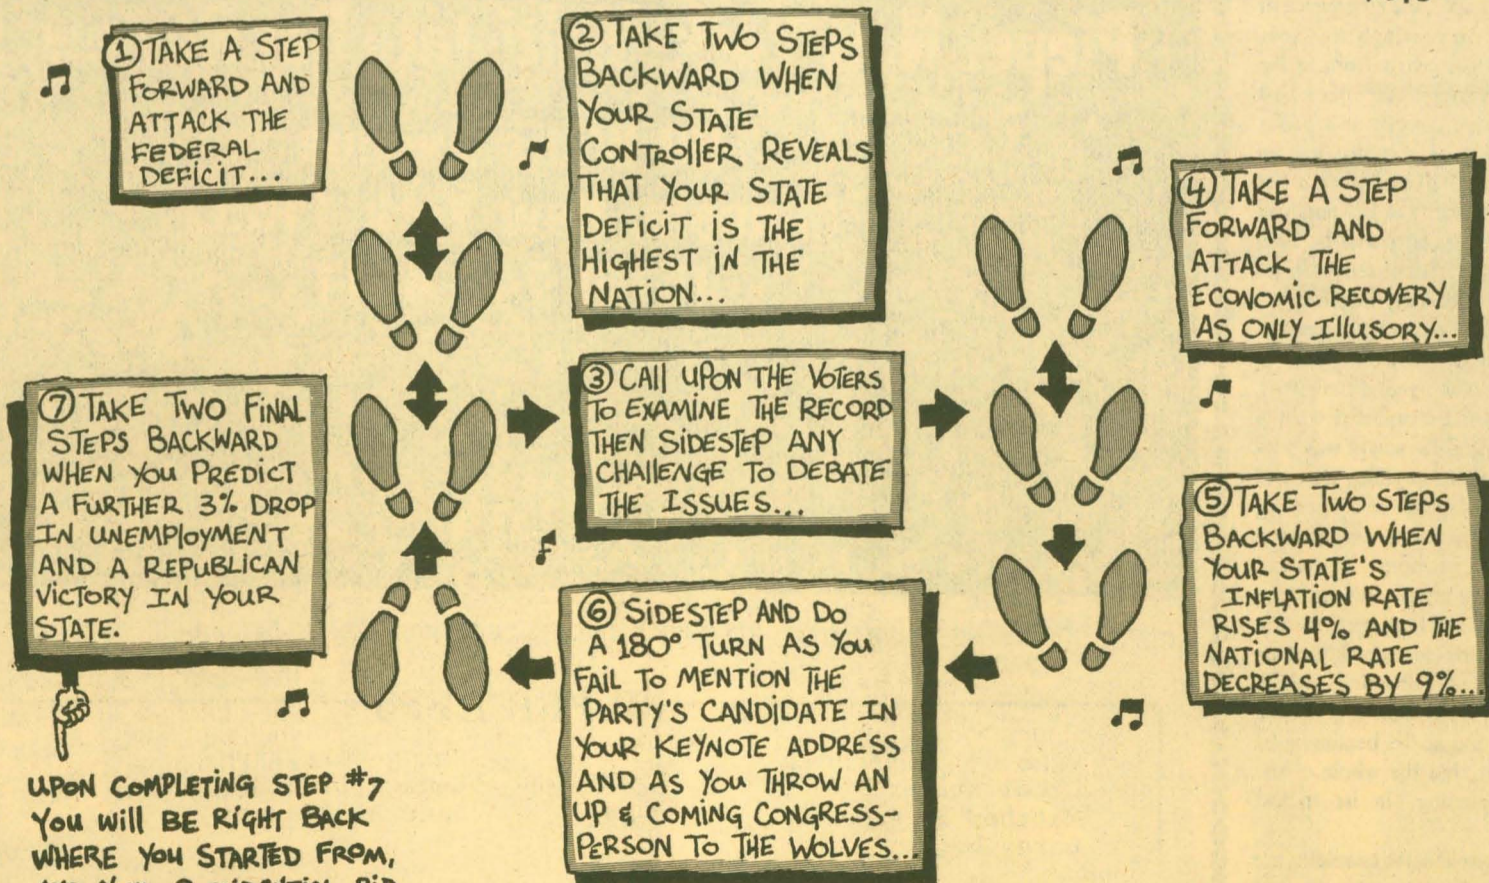 ① TAKE A STEP
FORWARD AND
ATTACK THE
FEDERAL
DEFICIT...
② TAKE TWO STEPS
BACKWARD WHEN
YOUR STATE
CONTROllER REVEALS
THAT YOUR STATE
DEFICIT IS THE
HIGHEST IN THE
NATION...
③ CAll UPON THE VOTERS
TO EXAMINE THE RECORD
THEN SIDESTEP ANY
CHAllENGE TO DEBATE
THE ISSUES...
④ TAKE A STEP
FORWARD AND
ATTACK THE
ECONOMIC RECOVERY
AS ONLY IllUSORY...
⑤ TAKE TWO STEPS
BACKWARD WHEN
YOUR STATE'S
INFLATION RATE
RISES 4% AND THE
NATIONAL RATE
DECREASES BY 9%...
⑥ SIDESTEP AND DO
A 180° TURN AS YOU
FAIL TO MENTION THE
PARTY'S CANDIDATE IN
YOUR KEYNOTE ADDRESS
AND AS YOU THROW AN
UP & COMING CONGRESS-
PERSON TO THE WOLVES...
⑦ TAKE TWO FINAL
STEPS BACKWARD
WHEN YOU PREDICT
A FURTHER 3% DROP
IN UNEMPLOYMENT
AND A REPUBLICAN
VICTORY IN YOUR
STATE.
UPON COMPLETING STEP #7
YOU WIll BE RIGHT BACK
WHERE YOU STARTED FROM,